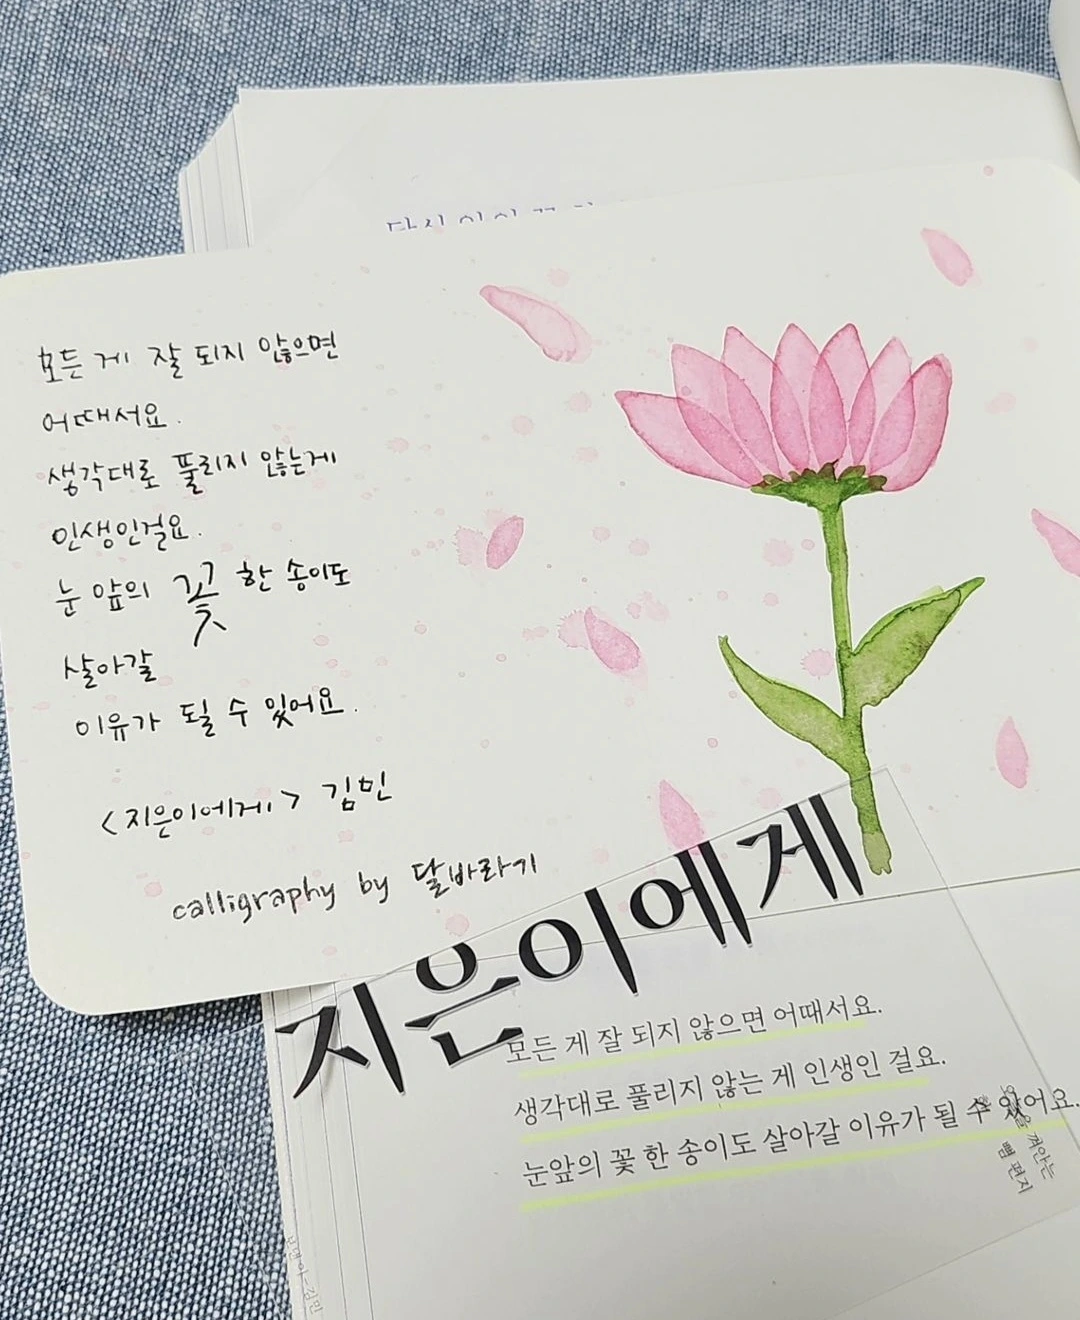 모든 게 잘 되지 않으면
어때서요.
생각대로 풀리지 않는게
인생인걸요.
눈 앞의 꽃 한 송이도
살아갈
이유가 될 수 있어요.
<지은이에게> 김민
calligraphy by 달바라기
지은이에게
모든 게 잘 되지 않으면 어때서요.
생각대로 풀리지 않는 게 인생인 걸요.
눈앞의 꽃 한 송이도 살아갈 이유가 될 수 있어요.
껴안는
편지
김민